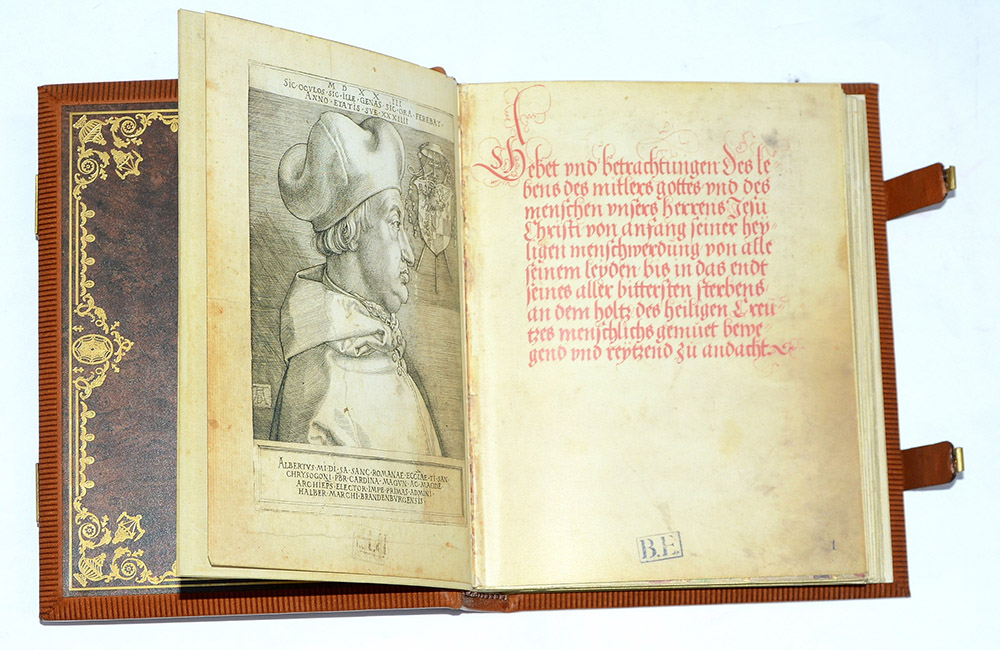 M D X X III
SIC·OCVLOS·SIC·ILLE·GENAS·SIC·ORA·FEREBAT·
ANNO·ETATIS·SVE·XXXIIII
ALBERTVS·MI·DI·SA·SANC·ROMANAE·ECCLAE·TI·SAN·
CHRYSOGONI·PBR·CARDINA·MAGVN·AC·MAGDE
ARCHIEPS·ELECTOR·IMPE·PRIMAS·ADMINI·
HALBER·MARCHI·BRANDENBVRGENSIS·
Gebet vnd betrachtungen des le-
bens des mitlers gottes vnd des
menschen vnsers herrens Jesu
Christi von anfang seiner hey-
ligen menschwerdung von alle
seinem leyden bis in das endt
seines aller bittersten sterbens
an dem holtz des heiligen Creu-
tzes menschlichs gemüet bewe-
gend vnd reytzend zu andacht.
B.E.
1